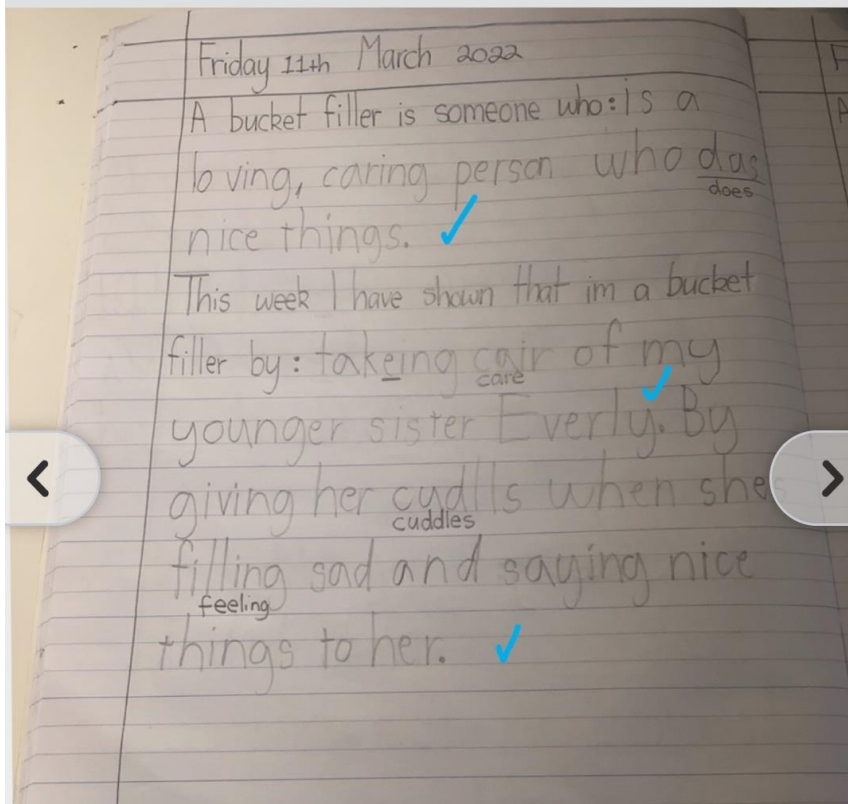 Friday 11th March 2022
A bucket filler is someone who: is a
loving, caring person who das
does
nice things.
This week I have shown that im a bucket
filler by: takeing cair of my
care
younger sister Everly. By
giving her cudlls when shes
cuddles
filling sad and saying nice
feeling
things to her.
F
A